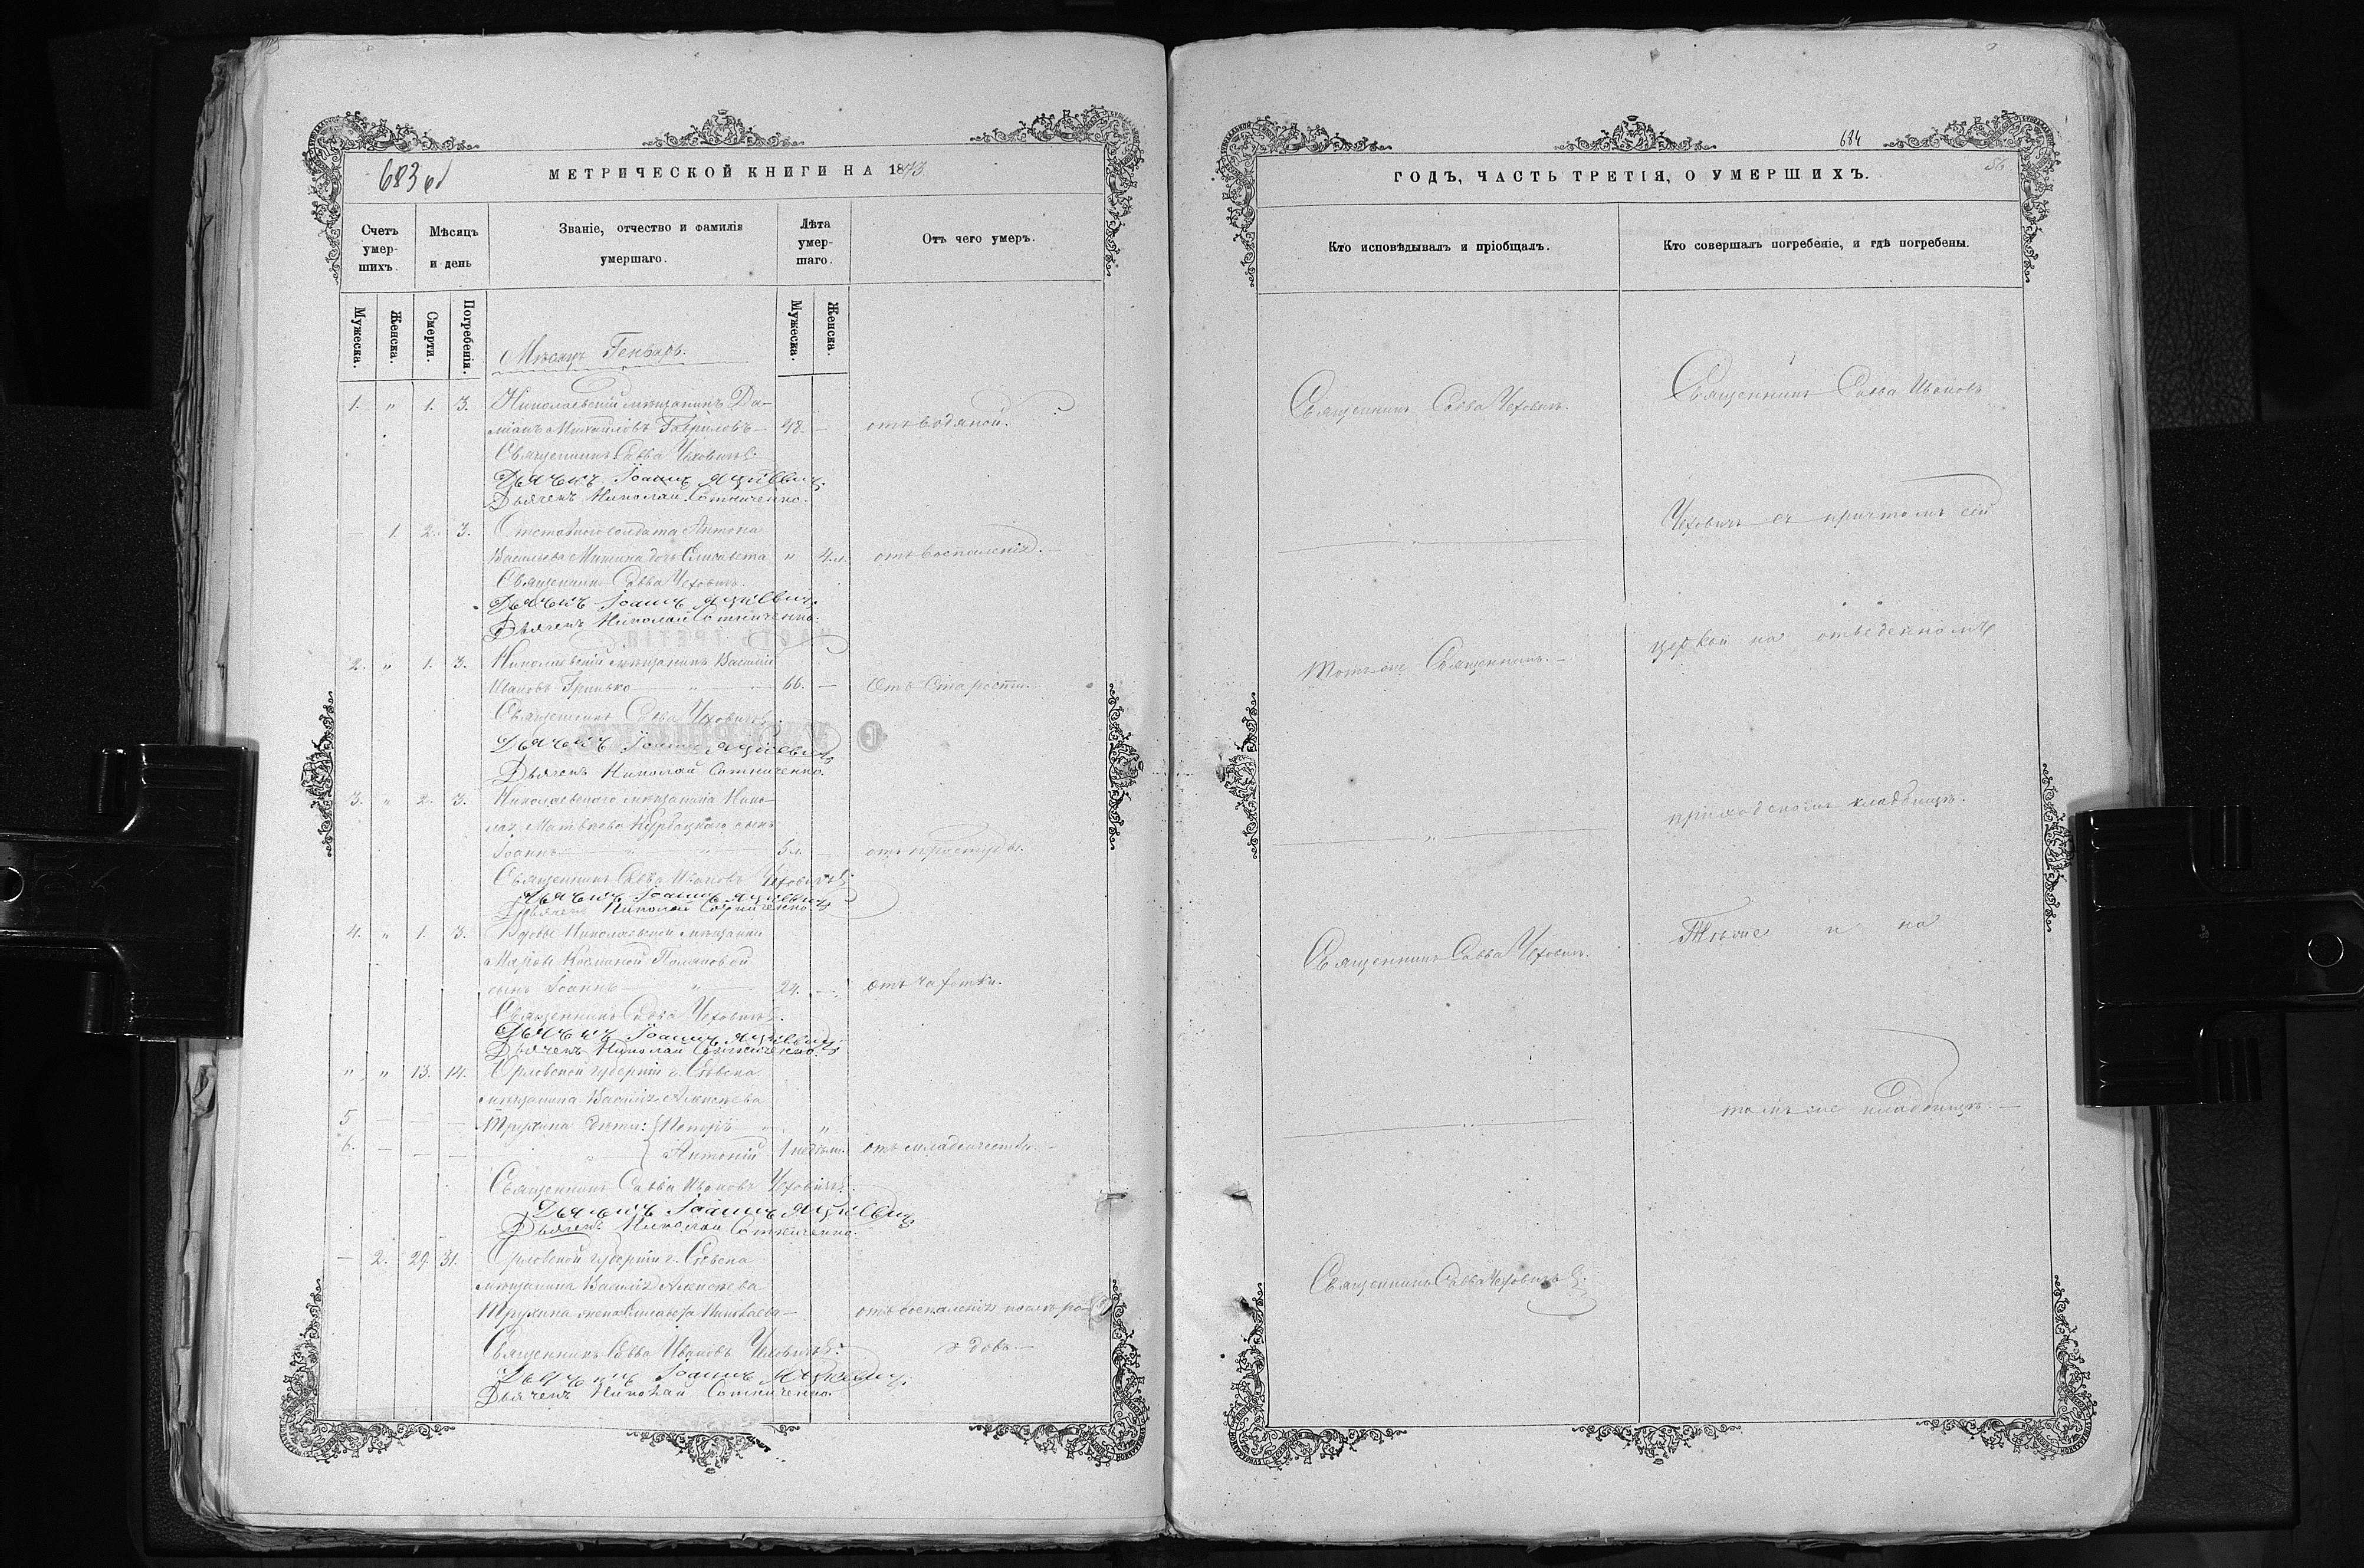 683 об
МЕТРИЧЕСКОЙ КНИГИ НА 1873
Счетъ умер-шихъ.
Мѣсяцъ и день
Званіе, отчество и фамилія умершаго.
Лѣта умер-шаго.
Отъ чего умеръ.
Мужеска.
Женска.
Смерти.
Погребенія.
Мужеска.
Женска.
Мѣсяцъ Генварь.
1. " 1. 3. Николаевскій мѣщанинъ Да-
міанъ Михайловъ Гавриловъ 48. — отъ водяной.
Священникъ Савва Чеховичъ
Дьячекъ Іоаннъ
Дьячекъ Николай Сотниченко.
— 1. 2. 3. Отставного солдата Антона
Васильева Митина дочь Елисавета " 4 л. отъ воспаленія.
Священникъ Савва Чеховичъ.
Дьячекъ Іоаннъ
Дьячекъ Николай Сотниченко.
2. " 1. 3. Николаевскій мѣщанинъ Василій
Ивановъ Гринько — " — 66. — Отъ старости.
Священникъ Савва Чеховичъ
Дьячекъ Іоаннъ
Дьячекъ Николай Сотниченко.
3. " 2. 3. Николаевскаго мѣщанина Нико-
лая Матвѣева сынъ
Іоаннъ 5 л. — отъ простуды.
Священникъ Савва Ивановъ Чеховичъ
Дьячекъ Іоаннъ
Дьячекъ Николай Сотниченко.
4. " 1. 3. Вдовы Николаевской мѣщанки
Поляковой
сынъ Іоаннъ — " — 24. — отъ чахотки.
Священникъ Савва Чеховичъ.
Дьячекъ Іоаннъ
Дьячекъ Николай Сотниченко.
" " 13. 14. Орловской губерніи г. Сѣвска
мѣщанина Василія Алексѣева
5 — — — Трухина дѣти: "
6. — — — " Антоній 1 недѣли. отъ младенчества.
Священникъ Савва Ивановъ Чеховичъ.
Дьячекъ Іоаннъ
Дьячекъ Николай Сотниченко.
— 2. 29. 31. Орловской губерніи г. Сѣвска
мѣщанина Василія Алексѣева
Трухина жена Елисавета отъ воспаленія послѣ ро-
довъ.
Священникъ Савва Ивановъ Чеховичъ
Дьячекъ Іоаннъ
Дьячекъ Николай Сотниченко.
684
ГОДЪ, ЧАСТЬ ТРЕТІЯ, О УМЕРШИХЪ.
Кто исповѣдывалъ и пріобщалъ.
Кто совершалъ погребеніе, и гдѣ погребены.
Священникъ Савва Чеховичъ.
Священникъ Савва Ивановъ
Чеховичъ съ причтомъ сей
Тотъ же Священникъ. —
церкви на отведенномъ
приходскомъ кладбищѣ.
Священникъ Савва Чеховичъ.
Тѣже и на
томъ же кладбищѣ. —
Священникъ Савва Чеховичъ.